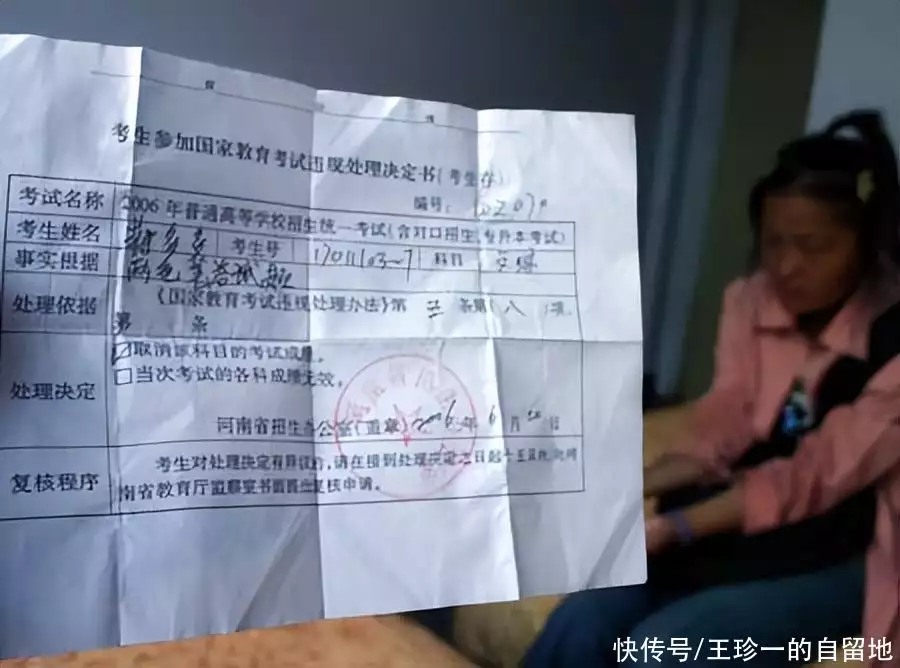 考生参加国家教育考试违规处理决定书(考生存)
编号:
考试名称 2006年普通高等学校招生统一考试(含对口招生、专升本考试)
考生姓名 考生号 科目
事实根据 两色笔答试题
处理依据 《国家教育考试违规处理办法》第 条第(八)项
第 条
处理决定 ☑取消该科目的考试成绩。
□当次考试的各科成绩无效。
河南省招生办公室(盖章)2006年6月 日
复核程序 考生对处理决定有异议的,请在接到处理决定之日起十五日内,向河
南省教育厅监察室书面提出复核申请。
快传号/王珍一的自留地